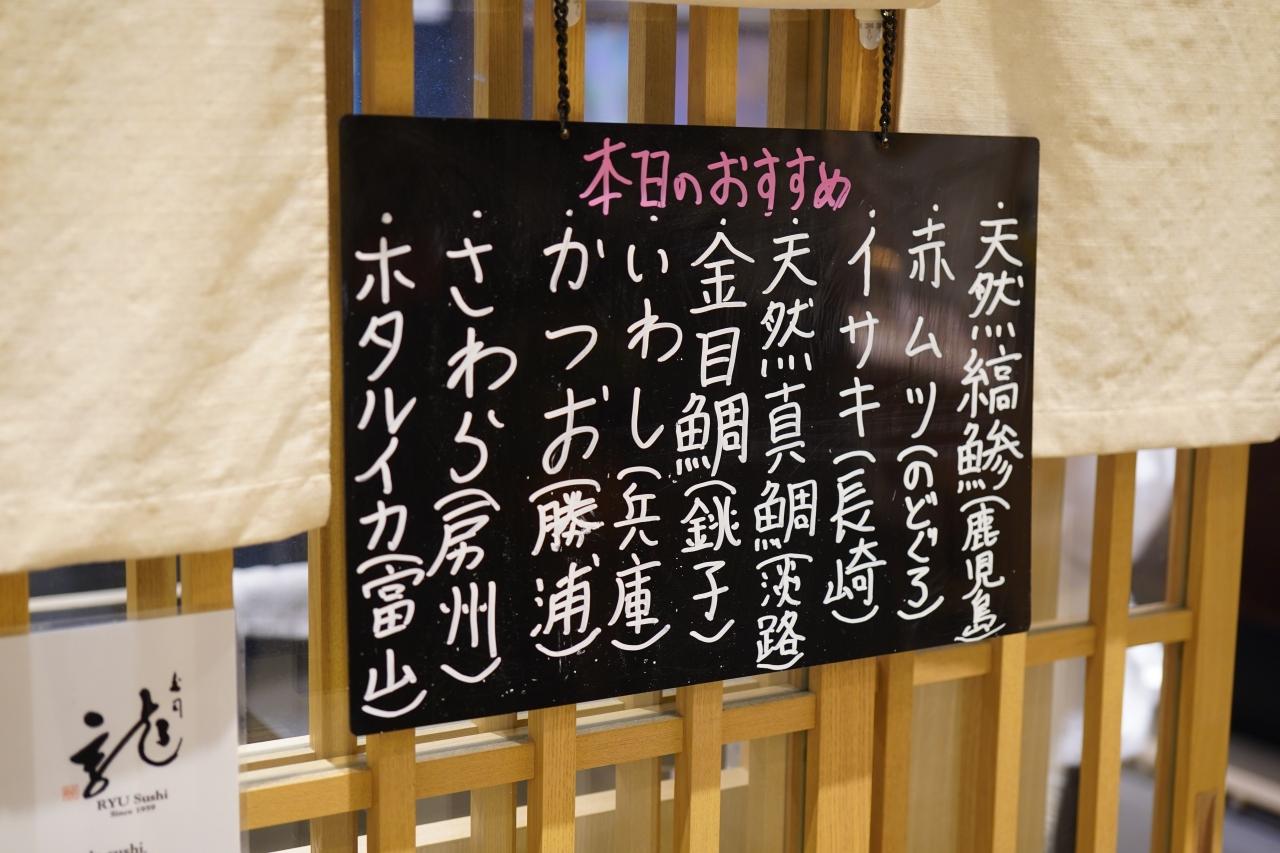 本日のおすすめ
・天然縞鯵(鹿児島)
・赤ムツ(のどぐろ)
・イサキ(長崎)
・天然真鯛(淡路)
・金目鯛(銚子)
・いわし(兵庫)
・かつお(勝浦)
・さわら(房州)
・ホタルイカ(富山)
寿司
龍
RYU Sushi
Since 1959